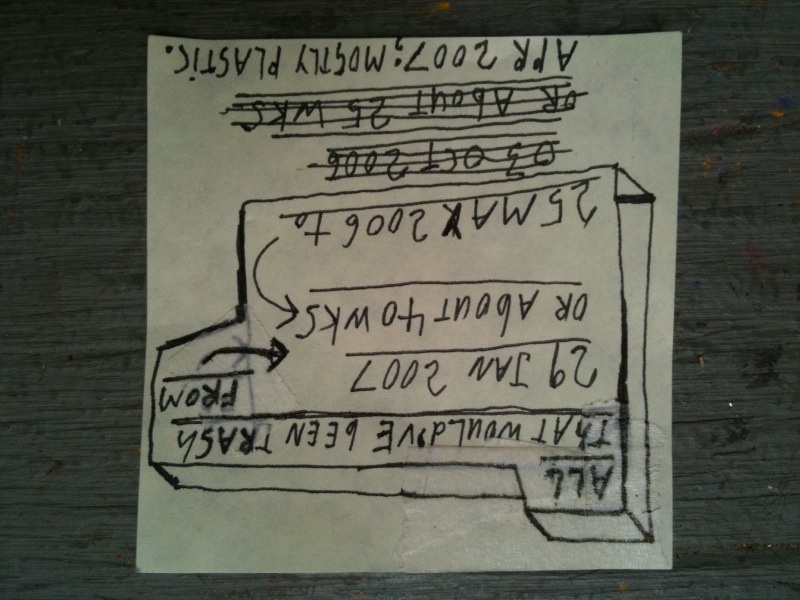 ALL
THAT WOULD'VE BEEN TRASH
FROM
29 JAN 2007
OR ABOUT 40 WKS
25 2006 to
03 OCT 2006
OR ABOUT 25 WKS
APR 2007; MOSTLY PLASTIC.